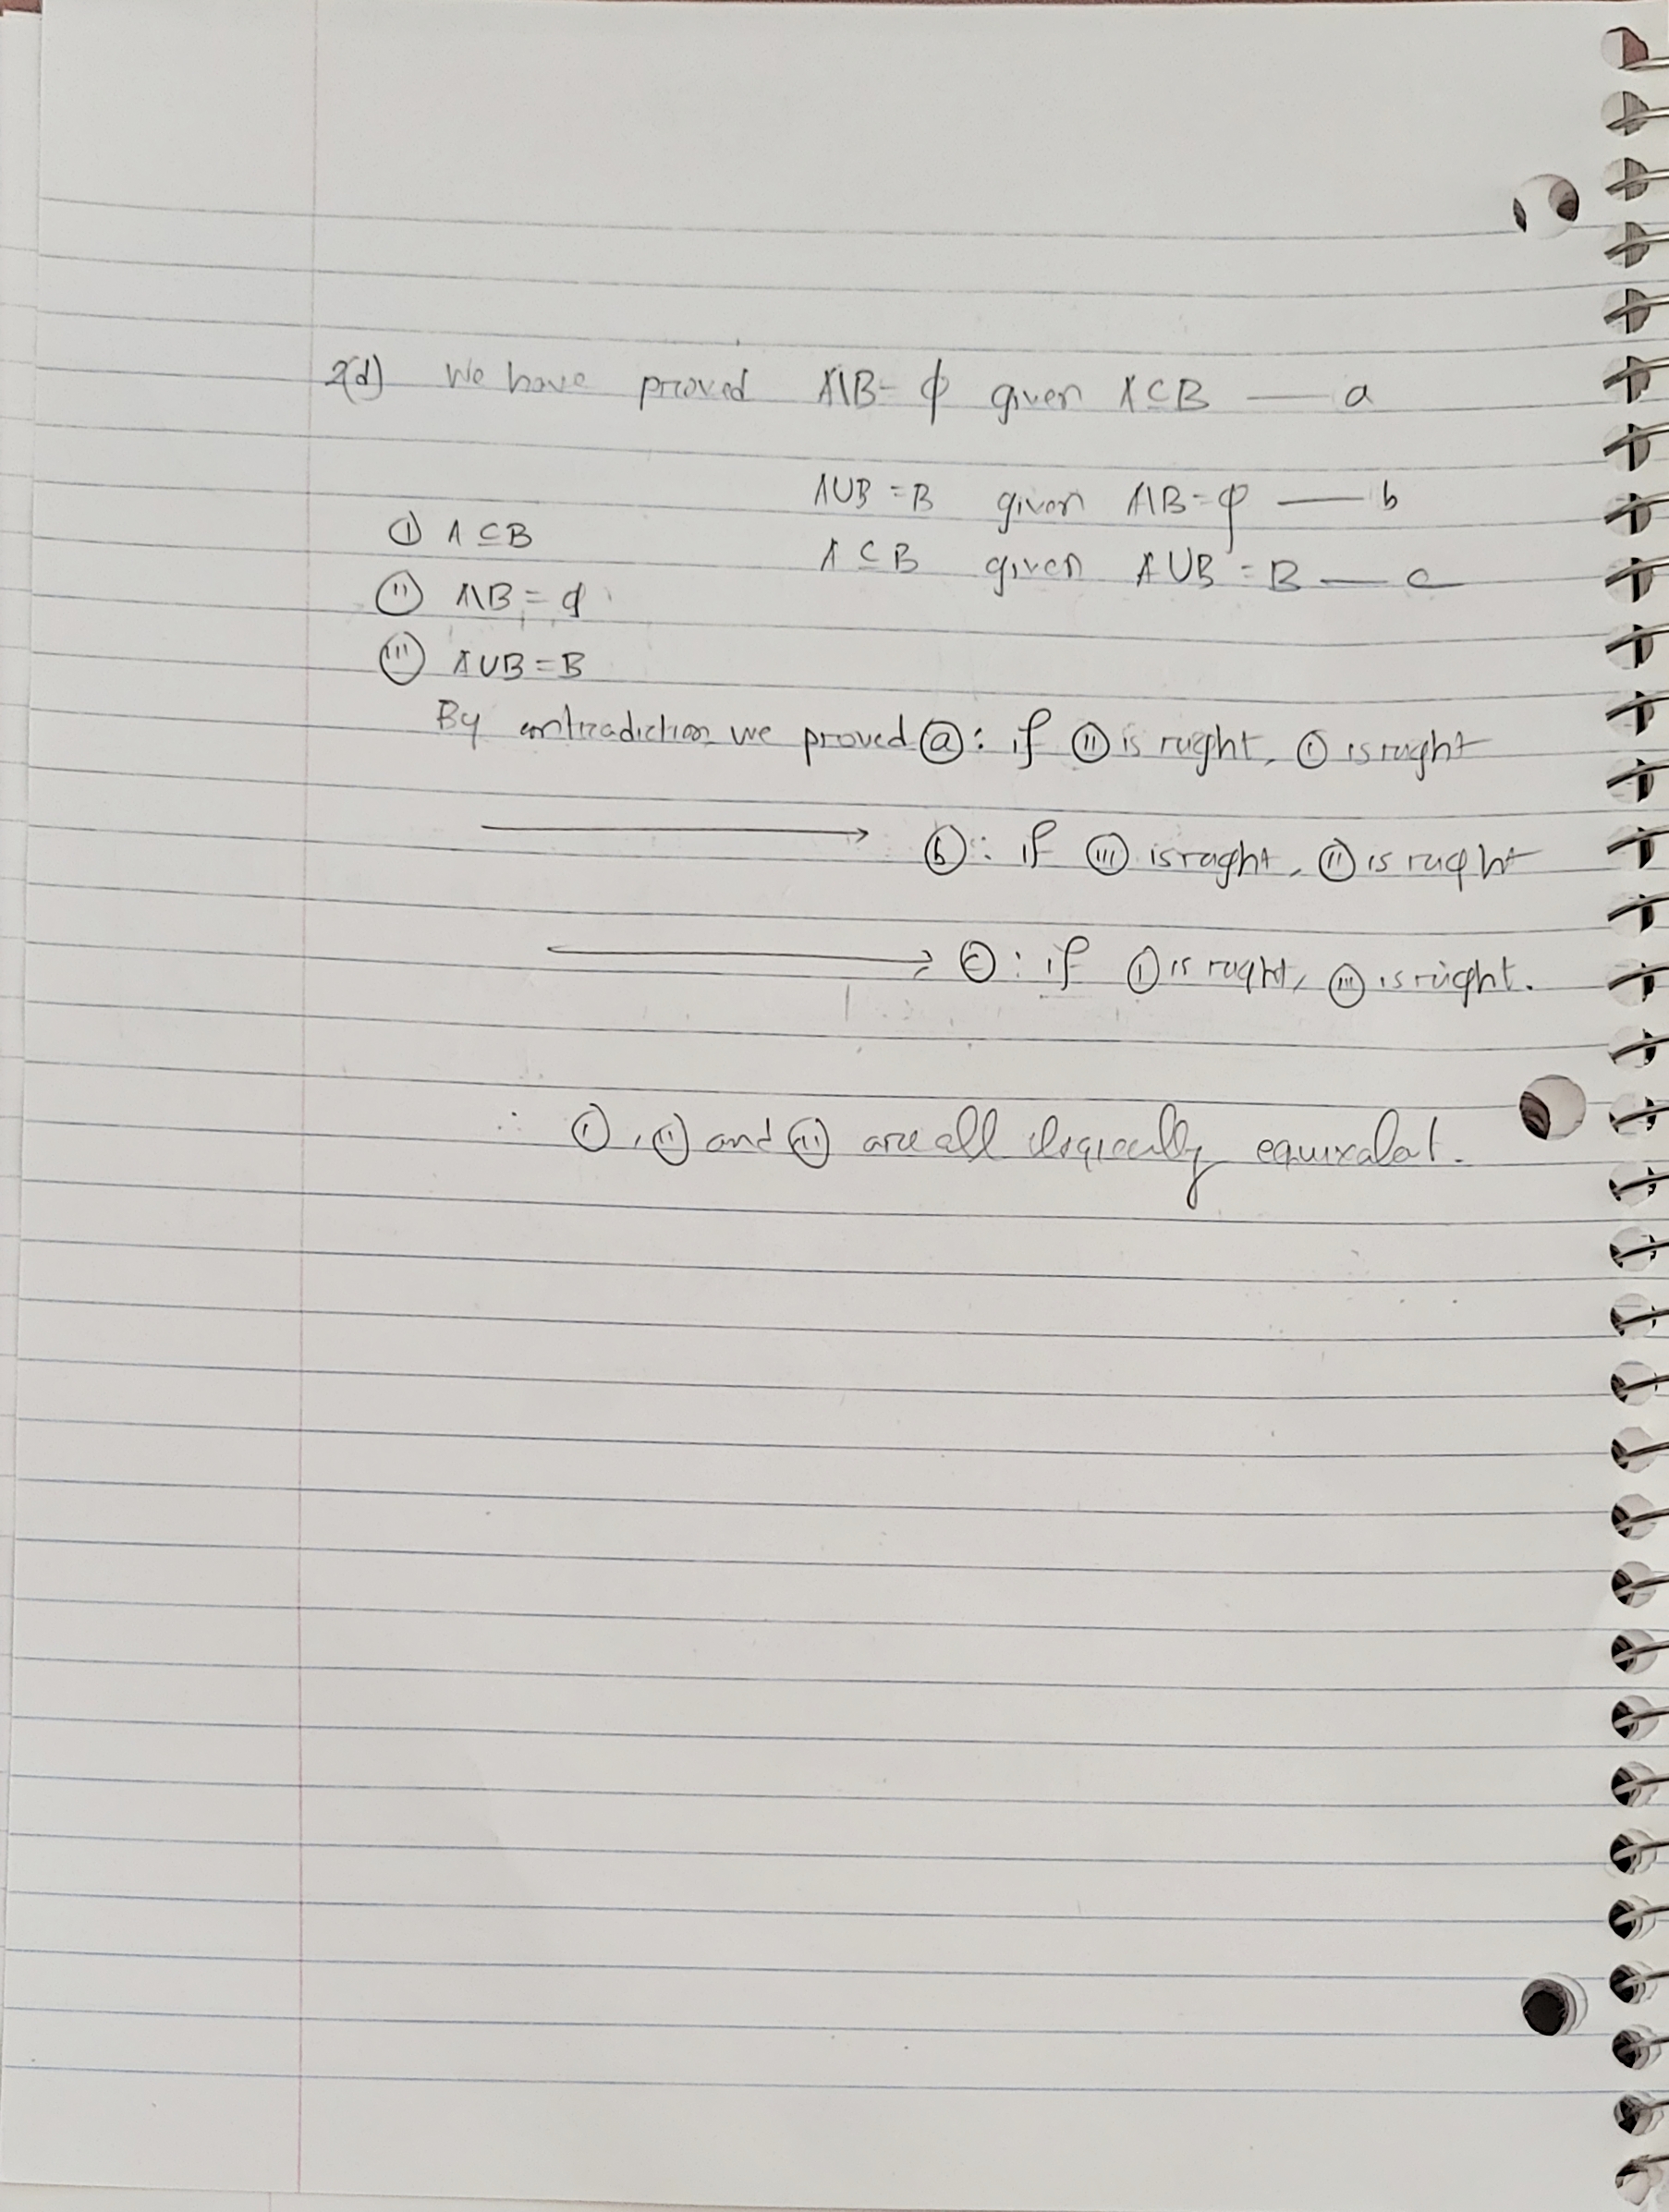 2(d) We have proved A\B = ϕ given A⊆B — a
A∪B = B given A\B = ϕ — b
① A⊆B
A⊆B given A∪B = B — c
ⓘⓘ A\B = ϕ
ⓘⓘⓘ A∪B = B
By contradiction we proved ⓐ: if (ii) is right, (i) is right
⟶ ⓑ: if (iii) is right, (ii) is right
⟶ ⓒ: if (i) is right, (iii) is right.
∴ (i), (ii) and (iii) are all logically equivalat.